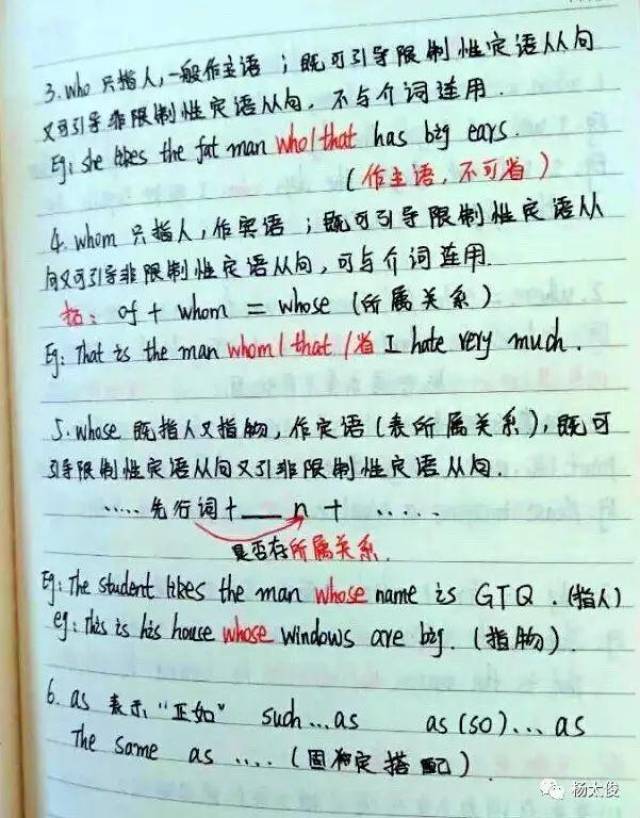 3. who 只指人,一般作主语 ;既可引导限制性定语从句
又可引导非限制性定语从句,不与介词连用.
Eg: she likes the fat man who/that has big ears.
(作主语,不可省)
4. whom 只指人,作宾语 ;既可引导限制性定语从
句又可引导非限制性定语从句,可与介词连用.
括: of + whom = whose (所属关系)
Eg: That is the man whom/that/省 I hate very much.
5. whose 既指人又指物,作定语(表所属关系),既可
引导限制性定语从句又引非限制性定语从句.
..... 先行词+___ n + .....
是否存所属关系.
Eg: The student likes the man whose name is GTQ. (指人)
eg: This is his house whose windows are big. (指物).
6. as 表示"正如" such...as as (so)...as
The same as .... (固定搭配)
杨太俊